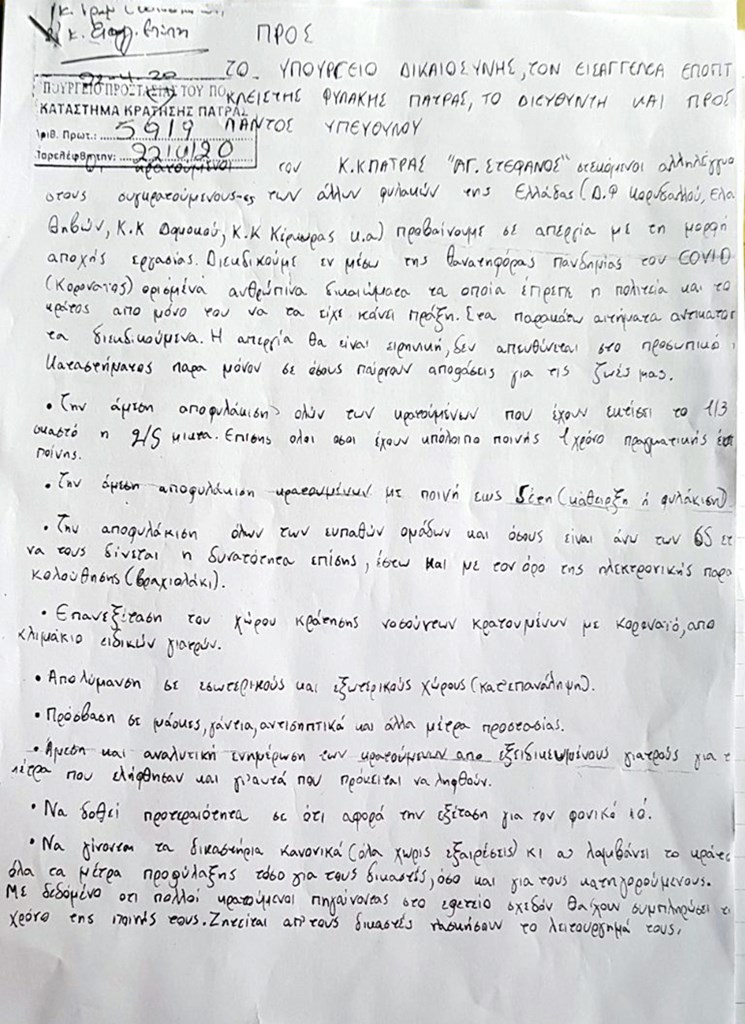 κ.
κ. Εισαγγ.
ΠΡΟΣ
ΤΟ ΥΠΟΥΡΓΕΙΟ ΔΙΚΑΙΟΣΥΝΗΣ, ΤΟΝ ΕΙΣΑΓΓΕΛΕΑ ΕΠΟΠΤ
22-4-20
ΠΟΥΡΓΕΙΟ ΠΡΟΣΤΑΣΙΑΣ ΤΟΥ ΠΟ
ΚΛΕΙΣΤΗΣ ΦΥΛΑΚΗΣ ΠΑΤΡΑΣ, ΤΟ ΔΙΕΥΘΥΝΤΗ ΚΑΙ ΠΡΟΣ
ΚΑΤΑΣΤΗΜΑ ΚΡΑΤΗΣΗΣ ΠΑΤΡΑΣ
ΠΑΝΤΟΣ ΥΠΕΥΘΥΝΟΥ
Αριθ. Πρωτ.: 5919
Παρελέφθη την: 22/4/20
κρατούμενοι του Κ.ΚΠΑΤΡΑΣ "ΑΓ. ΣΤΕΦΑΝΟΣ" στεκόμενοι αλληλέγγυο
στους συγκρατούμενους-ες των άλλων φυλακών της Ελλάδας (Δ.Φ Κορυδαλλού, Ελα
Θηβών, Κ.Κ Δομοκού, Κ.Κ Κέρκυρας κ.α) προβαίνουμε σε απεργία με τη μορφή
αποχής εργασίας. Διεκδικούμε εν μέσω της θανατηφόρας πανδημίας του COVID
(Κορονοϊός) ορισμένα ανθρώπινα δικαιώματα τα οποία έπρεπε η πολιτεία και το
κράτος απο μόνο του να τα είχε κάνει πράξη. Στα παρακάτω αιτήματα αντικατοπ
τα διεκδικούμενα. Η απεργία θα είναι ειρηνική, δεν απευθύνεται στο προσωπικό
Καταστήματος παρα μόνον σε όσους παίρνουν αποφάσεις για τις ζωές μας.
• Την άμεση αποφυλάκιση ολών των κρατουμένων που έχουν εκτίσει το 1/3
μικτά η 2/5 μικτα. Επίσης ολοι οσοι έχουν υπόλοιπο ποινής 1 χρόνο πραγματικής
ποίνης.
• Την άμεση αποφυλάκιση κρατουμένων με ποινή εως 5έτη (κάθειρξη ή φυλάκιση).
• Την αποφυλάκιση όλων των ευπαθών ομάδων και όσους είναι άνω των 65 ετ
να τους δίνεται η δυνατότητα επίσης, έστω και με τον όρο της ηλεκτρονικής παρα
κολούθησης (βραχιολάκι).
• Επανεξέταση του χώρου κράτησης νοσούντων κρατουμένων με κορονοϊό, απο
κλιμάκιο ειδικών γιατρών.
• Απολύμανση σε εσωτερικούς και εξωτερικούς χώρους (κατ'επανάληψη).
• Πρόσβαση σε μάσκες, γάντια, αντισηπτικά και άλλα μέτρα προστασίας.
• Άμεση και αναλυτική ενημέρωση των κρατουμένων απο εξειδικευμένους γιατρούς για τ
μέτρα που ελήφθησαν και γι'αυτά που πρόκειται να ληφθούν.
• Να δοθεί προτεραιότητα σε ότι αφορά την εξέταση για τον φονικό ιό.
• Να γίνονται τα δικαστήρια κανονικά (όλα χωρίς εξαιρέσεις) κι ας λαμβάνει το κράτος
όλα τα μέτρα προφύλαξης τόσο για τους δικαστές, όσο και για τους κατηγορούμενους.
Με δεδομένο οτι πολλοί κρατούμενοι πηγαίνοντας στο εφετείο σχεδόν θα'χουν συμπληρώσει τ
χρόνο της ποινής τους. Ζητείται απ'τους δικαστές ν'ασκήσουν το λειτούργημά τους.